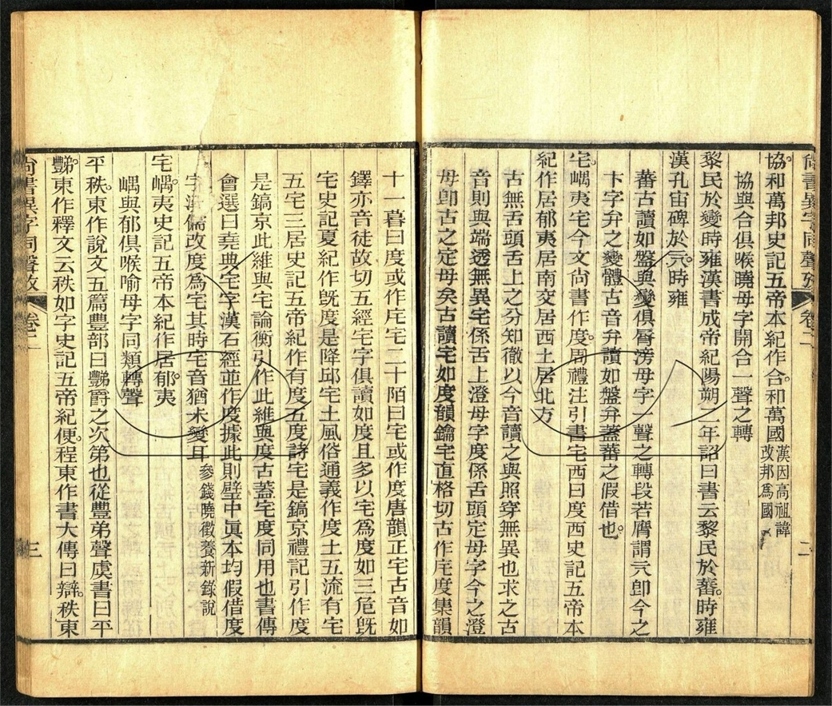 尙書異字同聲攷
卷二
二
協和萬邦史記五帝本紀作合和萬國漢因高祖諱改邦爲國
協與合俱喉曉母字開合一聲之轉
黎民於變時雍漢書成帝紀陽朔二年詔曰書云黎民於蕃時雍
漢孔宙碑於亓時雍
蕃古讀如盤與變俱脣滂母字一聲之轉段若膺謂亓卽今之
卞字弁之變體古音弁讀如盤弁蓋蕃之假借也
宅嵎夷宅今文尙書作度周禮注引書宅西曰度西史記五帝本
紀作居郁夷居南交居西土居北方
古無舌頭舌上之分知徹以今音讀之與照穿無異也求之古
音則與端透無異宅係舌上澄母字度係舌頭定母字今之澄
母卽古之定母矣古讀宅如度韻鑰宅直格切古作庑度集韻
十一暮曰度或作庑宅二十陌曰宅或作度唐韻正宅古音如
鐸亦音徒故切五經宅字俱讀如度且多以宅爲度如三危旣
宅史記夏紀作旣度是降邱宅土風俗通義作度土五流有宅
五宅三居史記五帝紀作有度五度詩宅是鎬京禮記引作度
是鎬京此維與宅論衡引作此維與度古蓋宅度同用也書傳
會選曰堯典宅字漢石經並作度據此則壁中眞本均假借度
字漢儒改度爲宅其時宅音猶未變耳參錢曉徵養新錄說
宅嵎夷史記五帝本紀作居郁夷
嵎與郁俱喉喻母字同類轉聲
平秩東作說文五篇豐部曰豑爵之次第也從豐弟聲虞書曰平
豑東作釋文云秩如字史記五帝紀便程東作書大傳曰辯秩東
尙書異字同聲攷
卷二
三